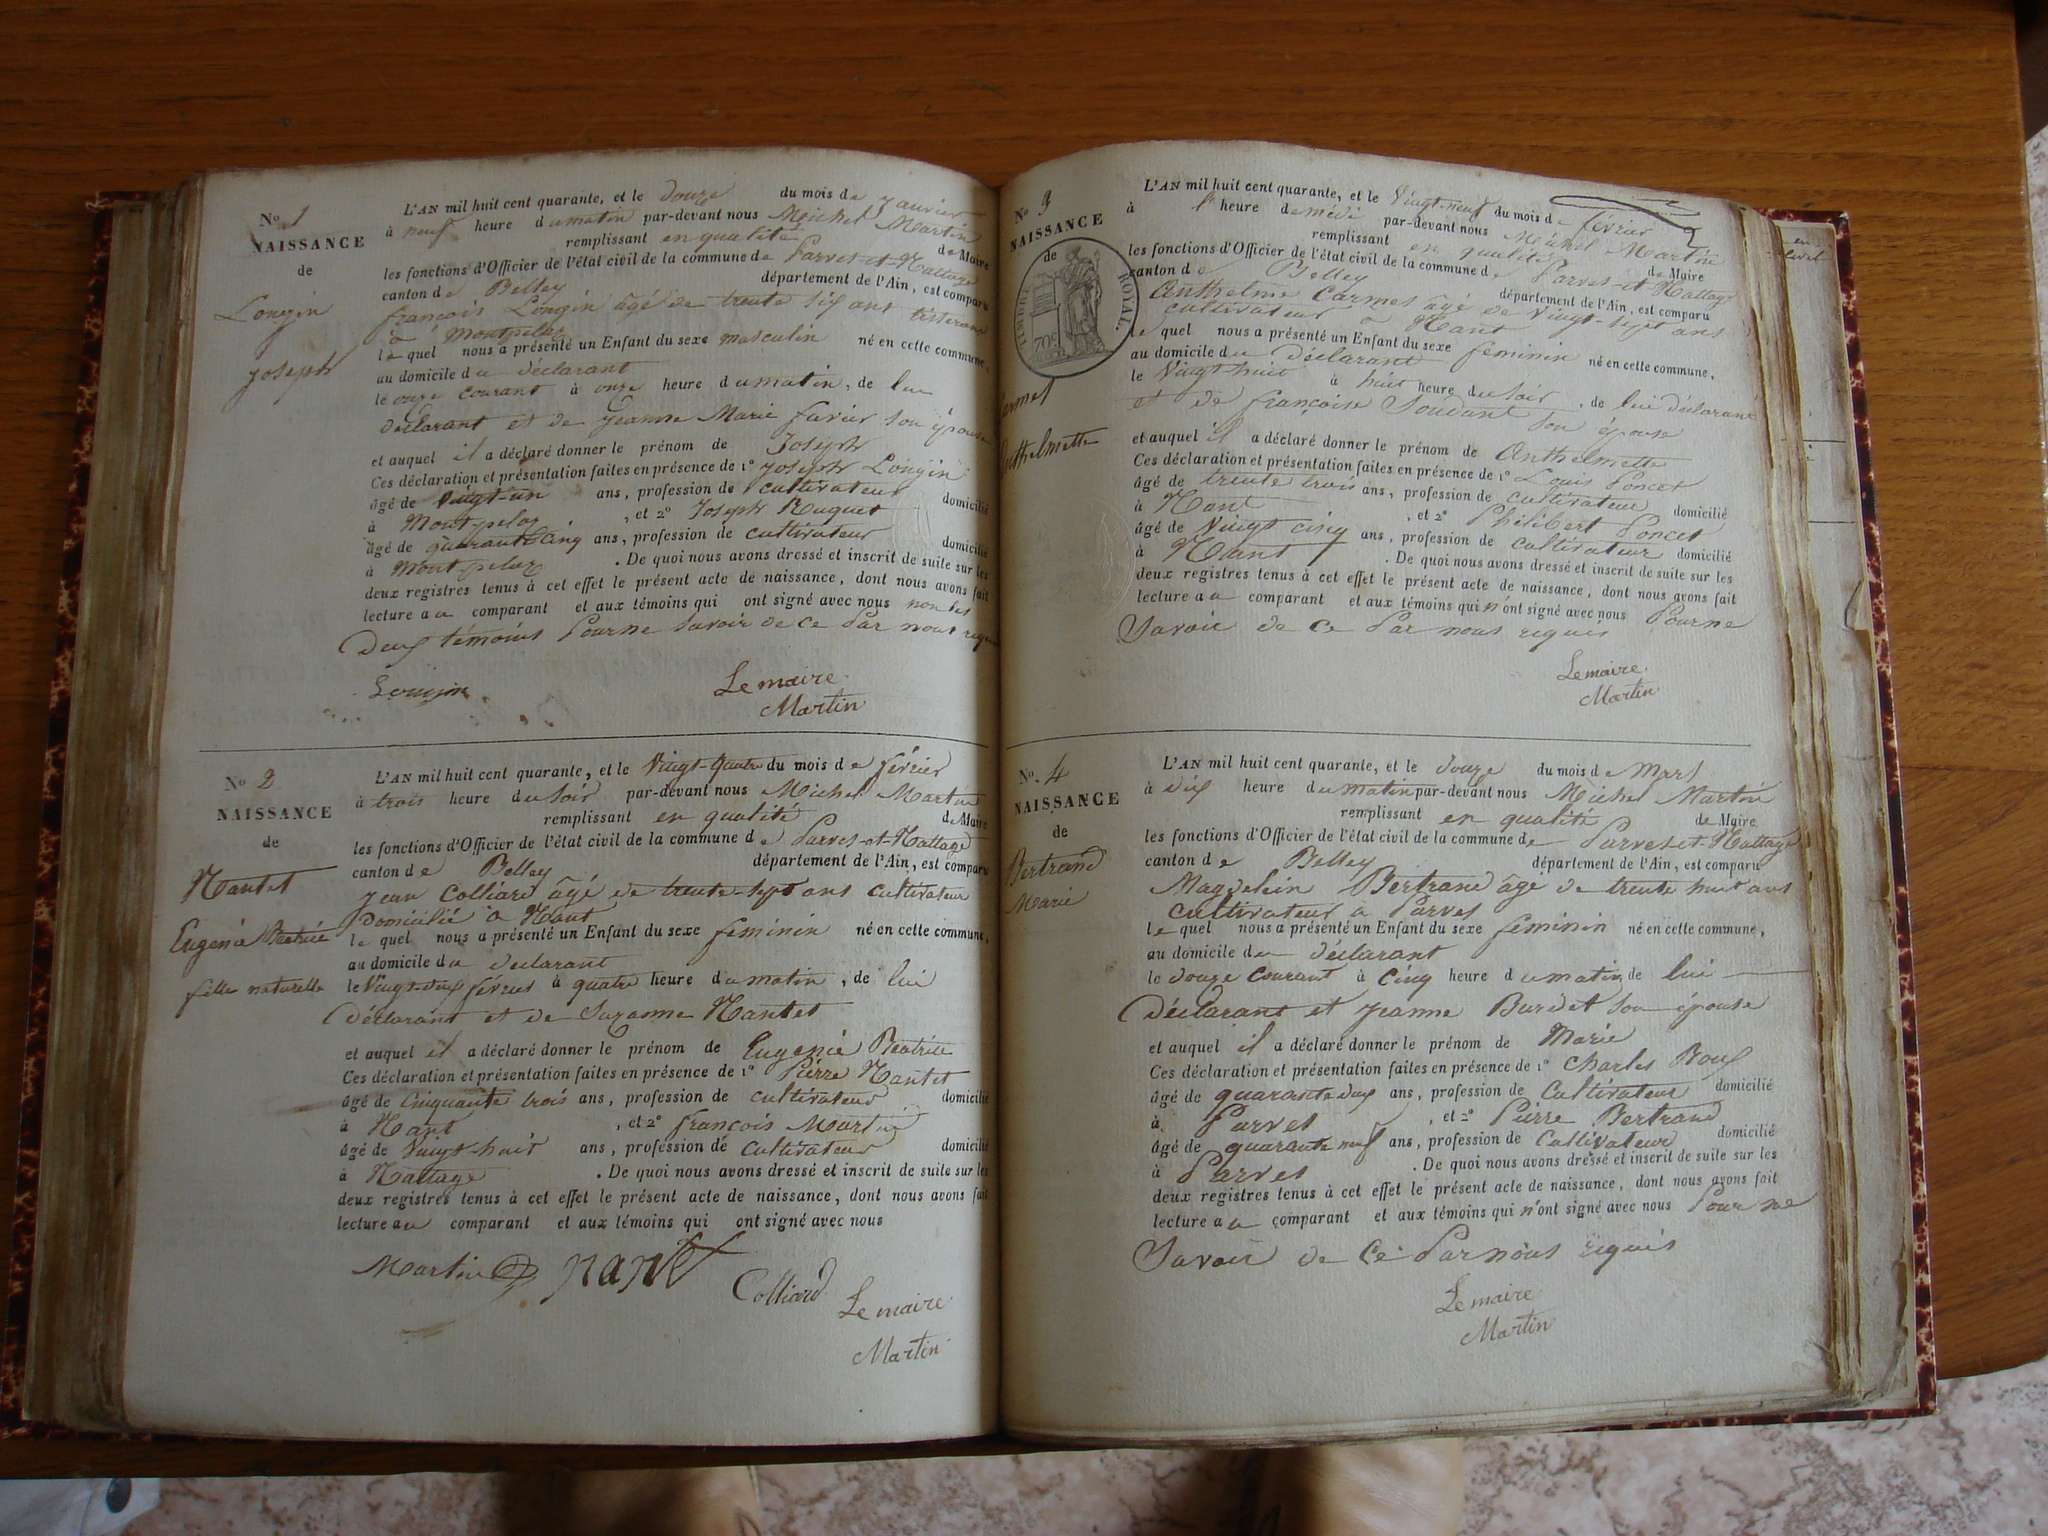 No 1
NAISSANCE
de
Longin
Joseph
L'AN mil huit cent quarante, et le douze du mois de Janvier
à neuf heure du matin par-devant nous Michel Martin
remplissant en qualité de Maire
les fonctions d'Officier de l'état civil de la commune de Parves-et-Nattage
canton de Belley département de l'Ain, est comparu
françois Longin âgé de trente six ans tisserand
à Montpelaz
lequel nous a présenté un Enfant du sexe masculin né en cette commune,
au domicile du déclarant
le onze courant à onze heure du matin, de lui
déclarant et de jeanne Marie favier son épouse
et auquel il a déclaré donner le prénom de Joseph
Ces déclaration et présentation faites en présence de 1º Joseph Longin
âgé de vingt-un ans, profession de cultivateur domicilié
à Montpelaz, et 2º Joseph Huguet
âgé de quarante cinq ans, profession de cultivateur domicilié
à Montpelaz. De quoi nous avons dressé et inscrit de suite sur les
deux registres tenus à cet effet le présent acte de naissance, dont nous avons fait
lecture au comparant et aux témoins qui ont signé avec nous non les
Deux témoins Pour ne savoir de ce Par nous requis
Longin
Le maire
Martin
No 2
NAISSANCE
de
Nantet
Eugénie Béatrice
fille naturelle
L'AN mil huit cent quarante, et le Vingt-quatre du mois de février
à trois heure du soir par-devant nous Michel Martin
remplissant en qualité de Maire
les fonctions d'Officier de l'état civil de la commune de Parves-et-Nattage
canton de Belley département de l'Ain, est comparu
Jean Colliard âgé de trente-sept ans cultivateur
Domicilié à Nant
lequel nous a présenté un Enfant du sexe féminin né en cette commune,
au domicile du déclarant
le Vingt-deux février à quatre heure du matin, de lui
Déclarant et de Suzanne Nantet
et auquel il a déclaré donner le prénom de Eugénie Béatrice
Ces déclaration et présentation faites en présence de 1º Pierre Nantet
âgé de Cinquante trois ans, profession de cultivateur domicilié
à Nant, et 2º françois Martin
âgé de Vingt-huit ans, profession de Cultivateur domicilié
à Nattage. De quoi nous avons dressé et inscrit de suite sur les
deux registres tenus à cet effet le présent acte de naissance, dont nous avons fait
lecture au comparant et aux témoins qui ont signé avec nous
Martin nantet
Colliard
Le maire
Martin
No 3
NAISSANCE
de
TIMBRE ROYAL.
70c
Carmes
Anthelmette
L'AN mil huit cent quarante, et le Vingt-neuf du mois de février
à heure de midi par-devant nous Michel Martin
remplissant en qualité de Maire
les fonctions d'Officier de l'état civil de la commune de Parves-et-Nattage
canton de Belley département de l'Ain, est comparu
Anthelme Carmes âgé de Vingt-sept ans
cultivateur à Nant
lequel nous a présenté un Enfant du sexe féminin né en cette commune,
au domicile du déclarant
le Vingt huit à huit heure du soir, de lui déclarant
et de françoise Soudant son épouse
et auquel il a déclaré donner le prénom de Anthelmette
Ces déclaration et présentation faites en présence de 1º Louis Poncet
âgé de trente trois ans, profession de cultivateur domicilié
à Nant, et 2º Philibert Poncet
âgé de Vingt cinq ans, profession de cultivateur domicilié
à Nant. De quoi nous avons dressé et inscrit de suite sur les
deux registres tenus à cet effet le présent acte de naissance, dont nous avons fait
lecture au comparant et aux témoins qui n'ont signé avec nous Pour ne
Savoir de ce Par nous requis
Le maire
Martin
No. 4
NAISSANCE
de
Bertrand
Marie
L'AN mil huit cent quarante, et le douze du mois de Mars
à dix heure du matin par-devant nous Michel Martin
remplissant en qualité de Maire
les fonctions d'Officier de l'état civil de la commune de Parves-et-Nattage
canton de Belley département de l'Ain, est comparu
Magdelein Bertrand âgé de trente huit ans
cultivateur à Parves
lequel nous a présenté un Enfant du sexe féminin né en cette commune,
au domicile du déclarant
le douze courant à cinq heure du matin de lui
Déclarant et jeanne Burdet son épouse
et auquel il a déclaré donner le prénom de Marie
Ces déclaration et présentation faites en présence de 1º Charles Roux
âgé de quarante deux ans, profession de Cultivateur domicilié
à Parves, et 2º Pierre Bertrand
âgé de quarante neuf ans, profession de Cultivateur domicilié
à Parves. De quoi nous avons dressé et inscrit de suite sur les
deux registres tenus à cet effet le présent acte de naissance, dont nous avons fait
lecture au comparant et aux témoins qui n'ont signé avec nous Pour ne
Savoir de Ce Par nous requis
Le maire
Martin